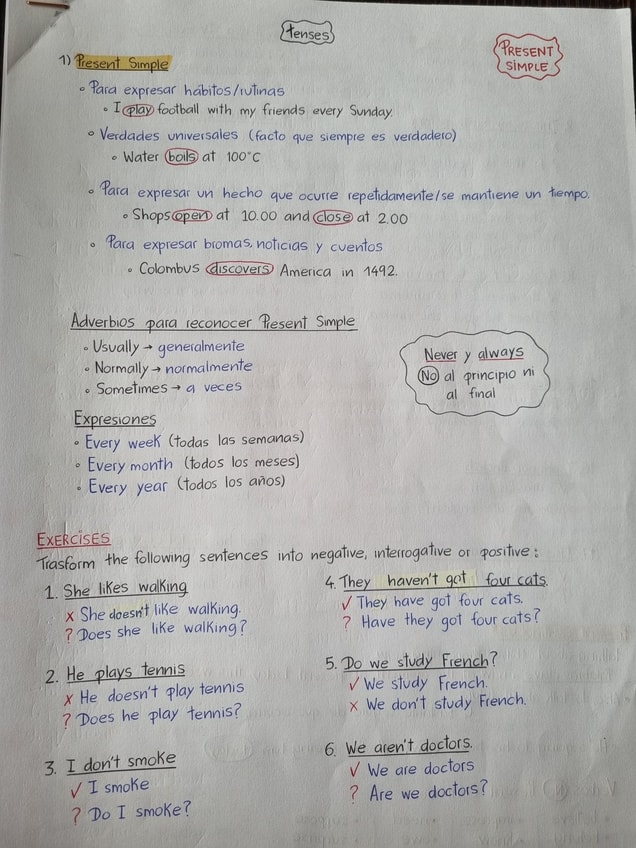 tenses
PRESENT
SIMPLE
1) Present Simple
• Para expresar hábitos/rutinas
• I play football with my friends every Sunday.
• Verdades universales (facto que siempre es verdadero)
• Water boils at 100°C
• Para expresar un hecho que ocurre repetidamente/se mantiene un tiempo.
• Shops open at 10.00 and close at 2.00
• Para expresar bromas, noticias y cuentos
• Colombus discovers America in 1492.
Adverbios para reconocer Present Simple
• Usually → generalmente
• Normally → normalmente
• Sometimes → a veces
Never y always
NO al principio ni
al final
Expresiones
• Every week (todas las semanas)
• Every month (todos los meses)
• Every year (todos los años)
EXERCISES
Trasform the following sentences into negative, interrogative or positive:
1. She likes walking
x She doesn't like walking.
? Does she like walking?
2. He plays tennis
x He doesn't play tennis
? Does he play tennis?
3. I don't smoke
✓ I smoke
? Do I smoke?
4. They haven't got four cats.
✓ They have got four cats.
? Have they got four cats?
5. Do we study French?
✓ We study French.
x We don't study French.
6. We aren't doctors.
✓ We are doctors
? Are we doctors?